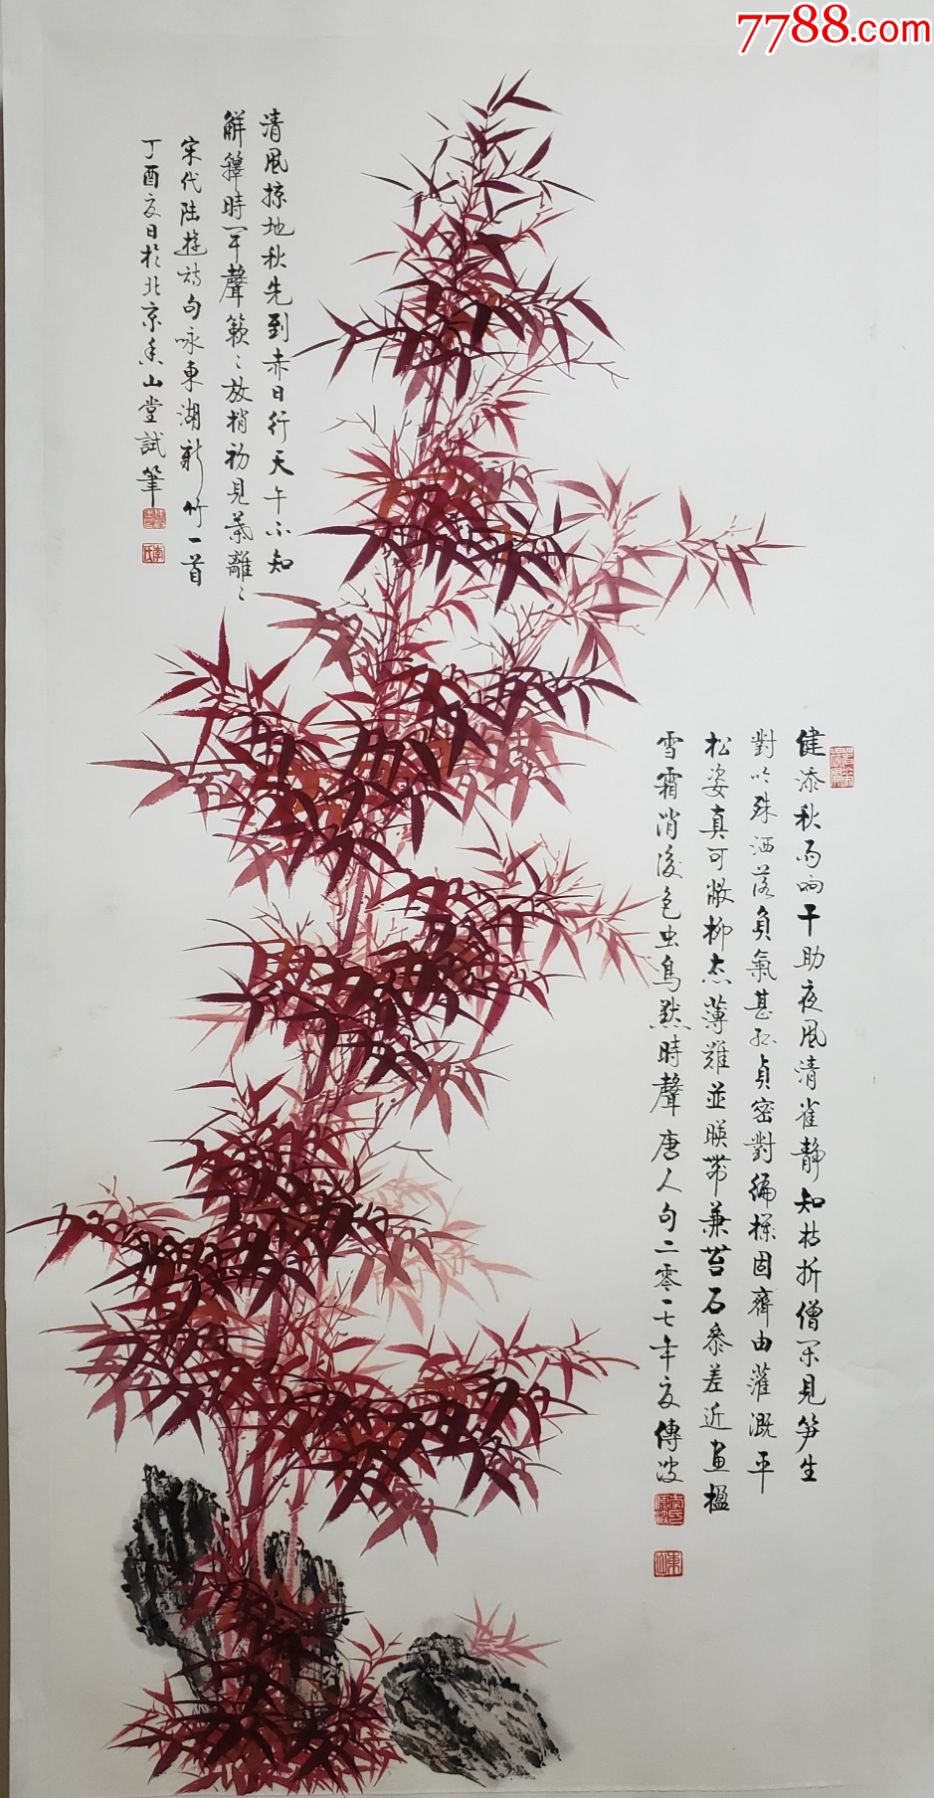 7788.com
清風掠地秋先到赤日行天午不知
解籜時聲簌〻放梢初見葉離〻
宋代陆游詩句咏東湖新竹一首
丁酉夏日於北京香山堂試筆
健添秋雨响干助夜風清雀静知枯折僧閑見笋生
對吟殊洒落負氣甚孤貞密對編標固齊由灌溉平
松姿真可敵柳态薄難並暎帶兼苔石參差近畫楹
雪霜消後色虫鳥默時聲 唐人句二零一七年夏傳波